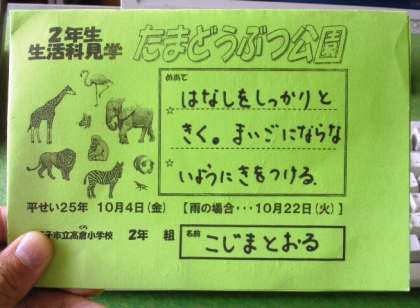 2年生
生活科見学
たまどうぶつ公園
めあて
☆はなしをしっかりと
きく。まいごにならな
☆いようにきをつける.
平せい25年 10月4日(金) 【雨の場合･･･10月22日(火)】
子市立高倉小学校 2年 組
名前
こじまとおる